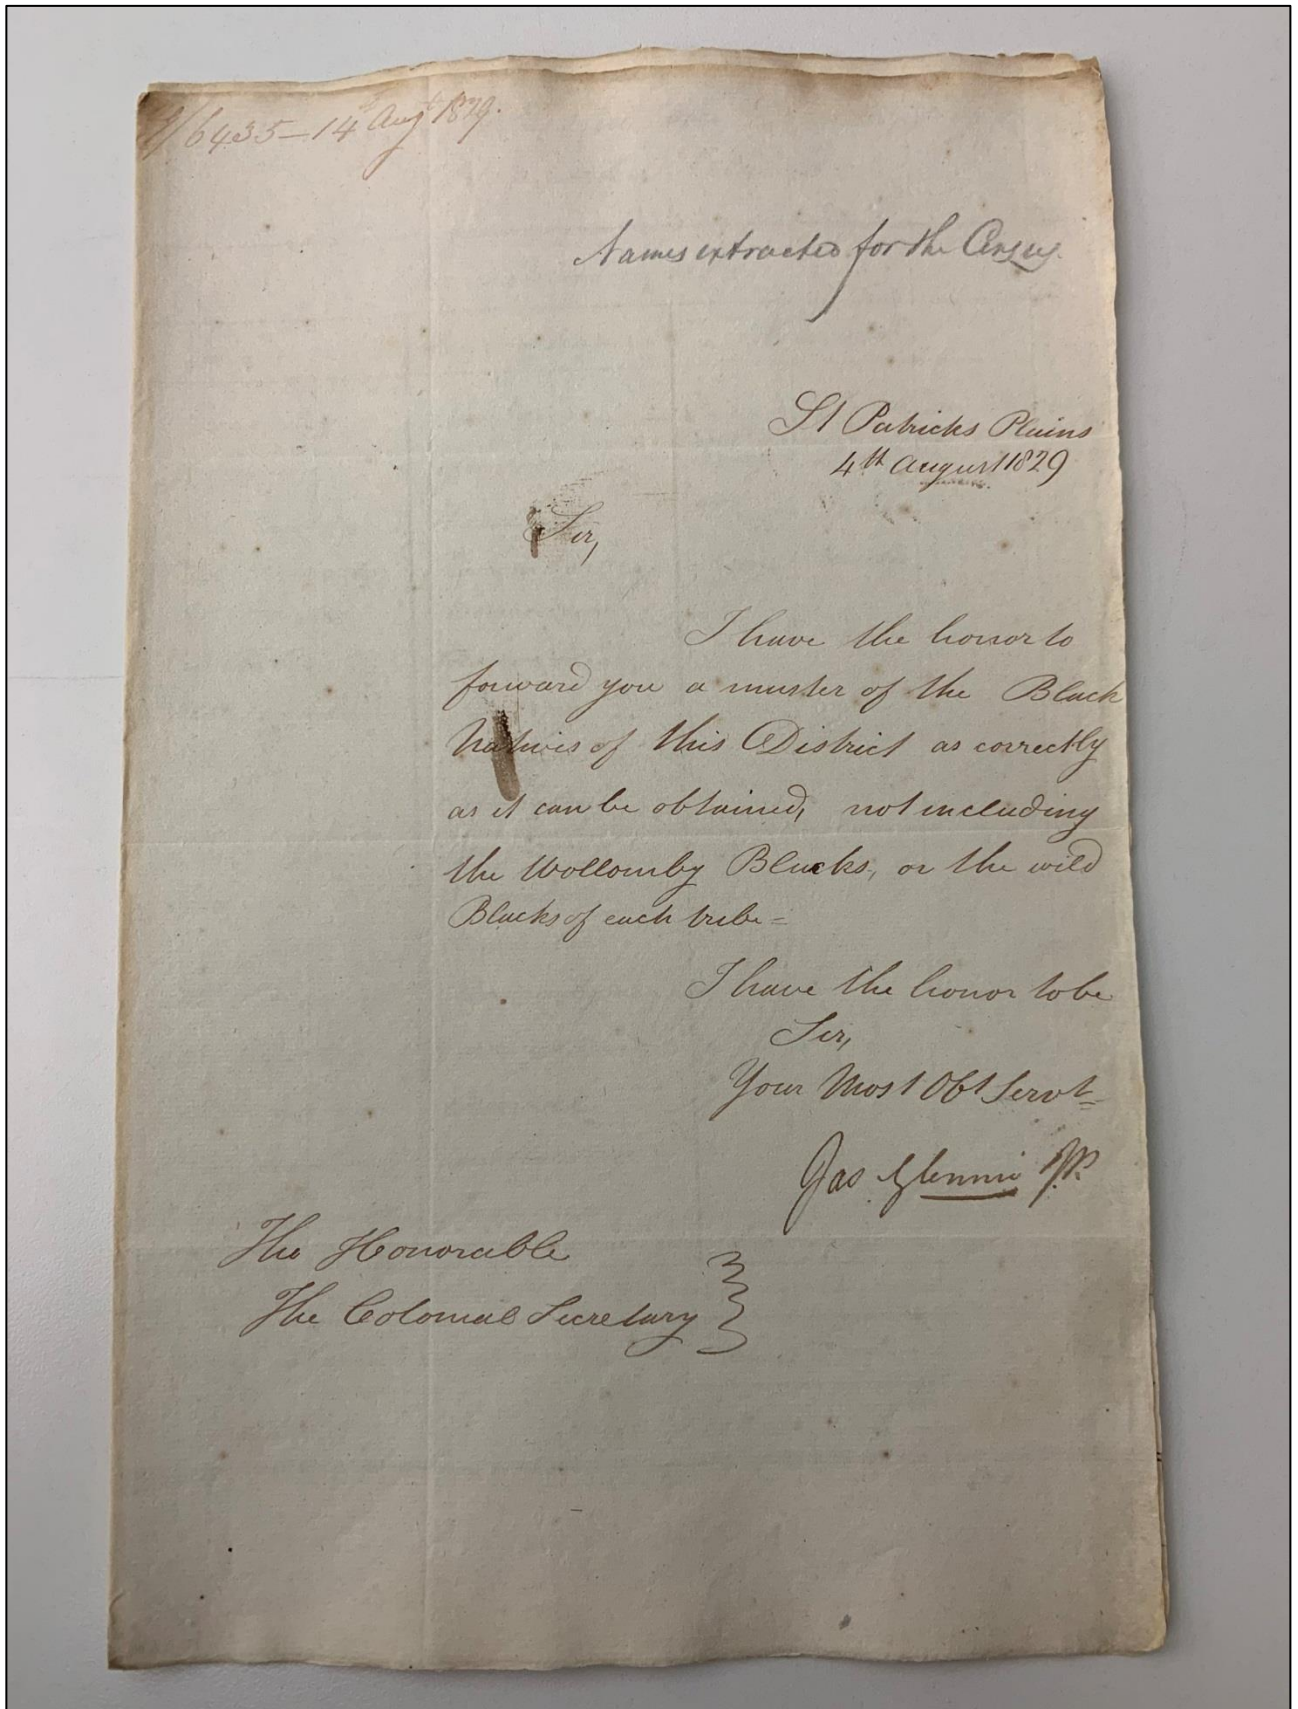 /6435 — 14th Augt 1829.
Names extracted for the Census.
St Patricks Plains
4th August 1829
Sir,
I have the honor to
forward you a muster of the Black
Natives of this District as correctly
as it can be obtained, not including
the Wollomby Blacks, or the wild
Blacks of each tribe =
I have the honor to be
Sir,
Your Most Obt Servt =
Jas Glennie JP.
The Honorable
The Colonial Secretary